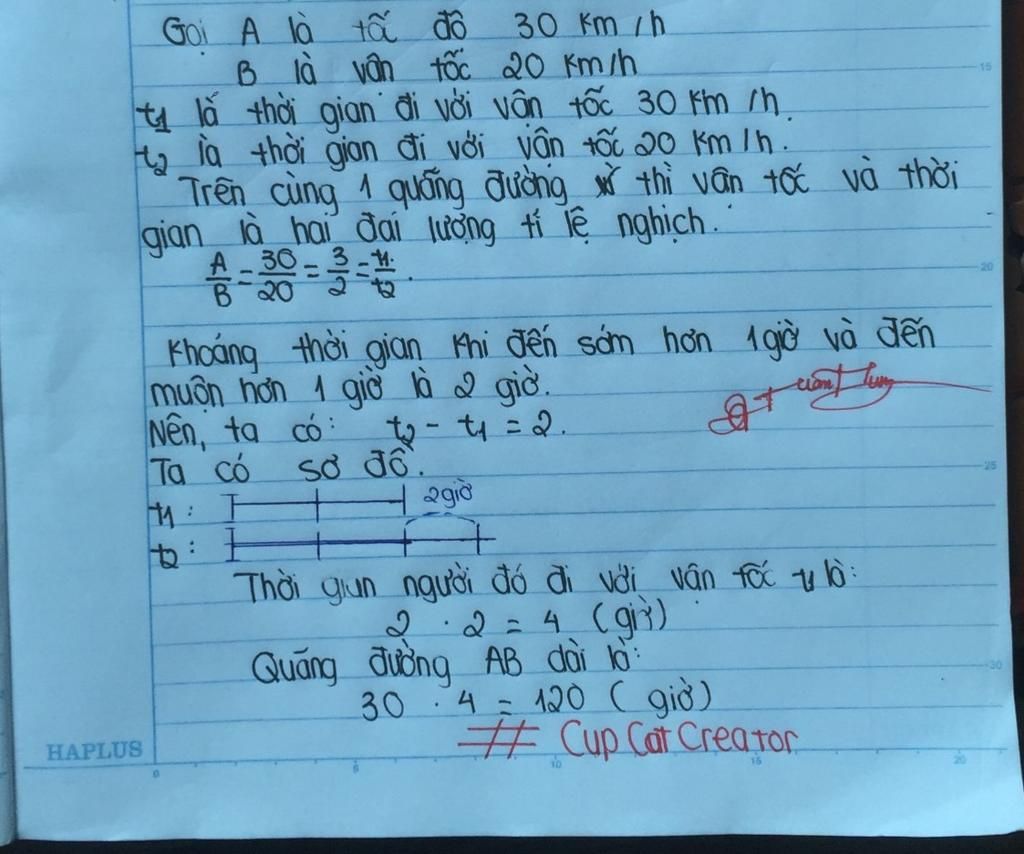 Gọi A là tốc độ 30 Km/h
B là vận tốc 20 Km/h
t1 là thời gian đi với vận tốc 30 Km/h.
t2 là thời gian đi với vận tốc 20 Km/h.
Trên cùng 1 quãng đường thì vận tốc và thời
gian là hai đại lượng tỉ lệ nghịch.
A/B = 30/20 = 3/2 = t1/t2.
Khoảng thời gian khi đến sớm hơn 1 giờ và đến
muộn hơn 1 giờ là 2 giờ.
Nên, ta có: t2 - t1 = 2.
Ta có sơ đồ.
t1:
2 giờ
t2:
Thời gian người đó đi với vận tốc t1 là:
2 . 2 = 4 (giờ)
Quãng đường AB dài là:
30 . 4 = 120 (giờ)
# Cup Cat Creator
HAPLUS
15
20
25
30
0 5 10 15 20